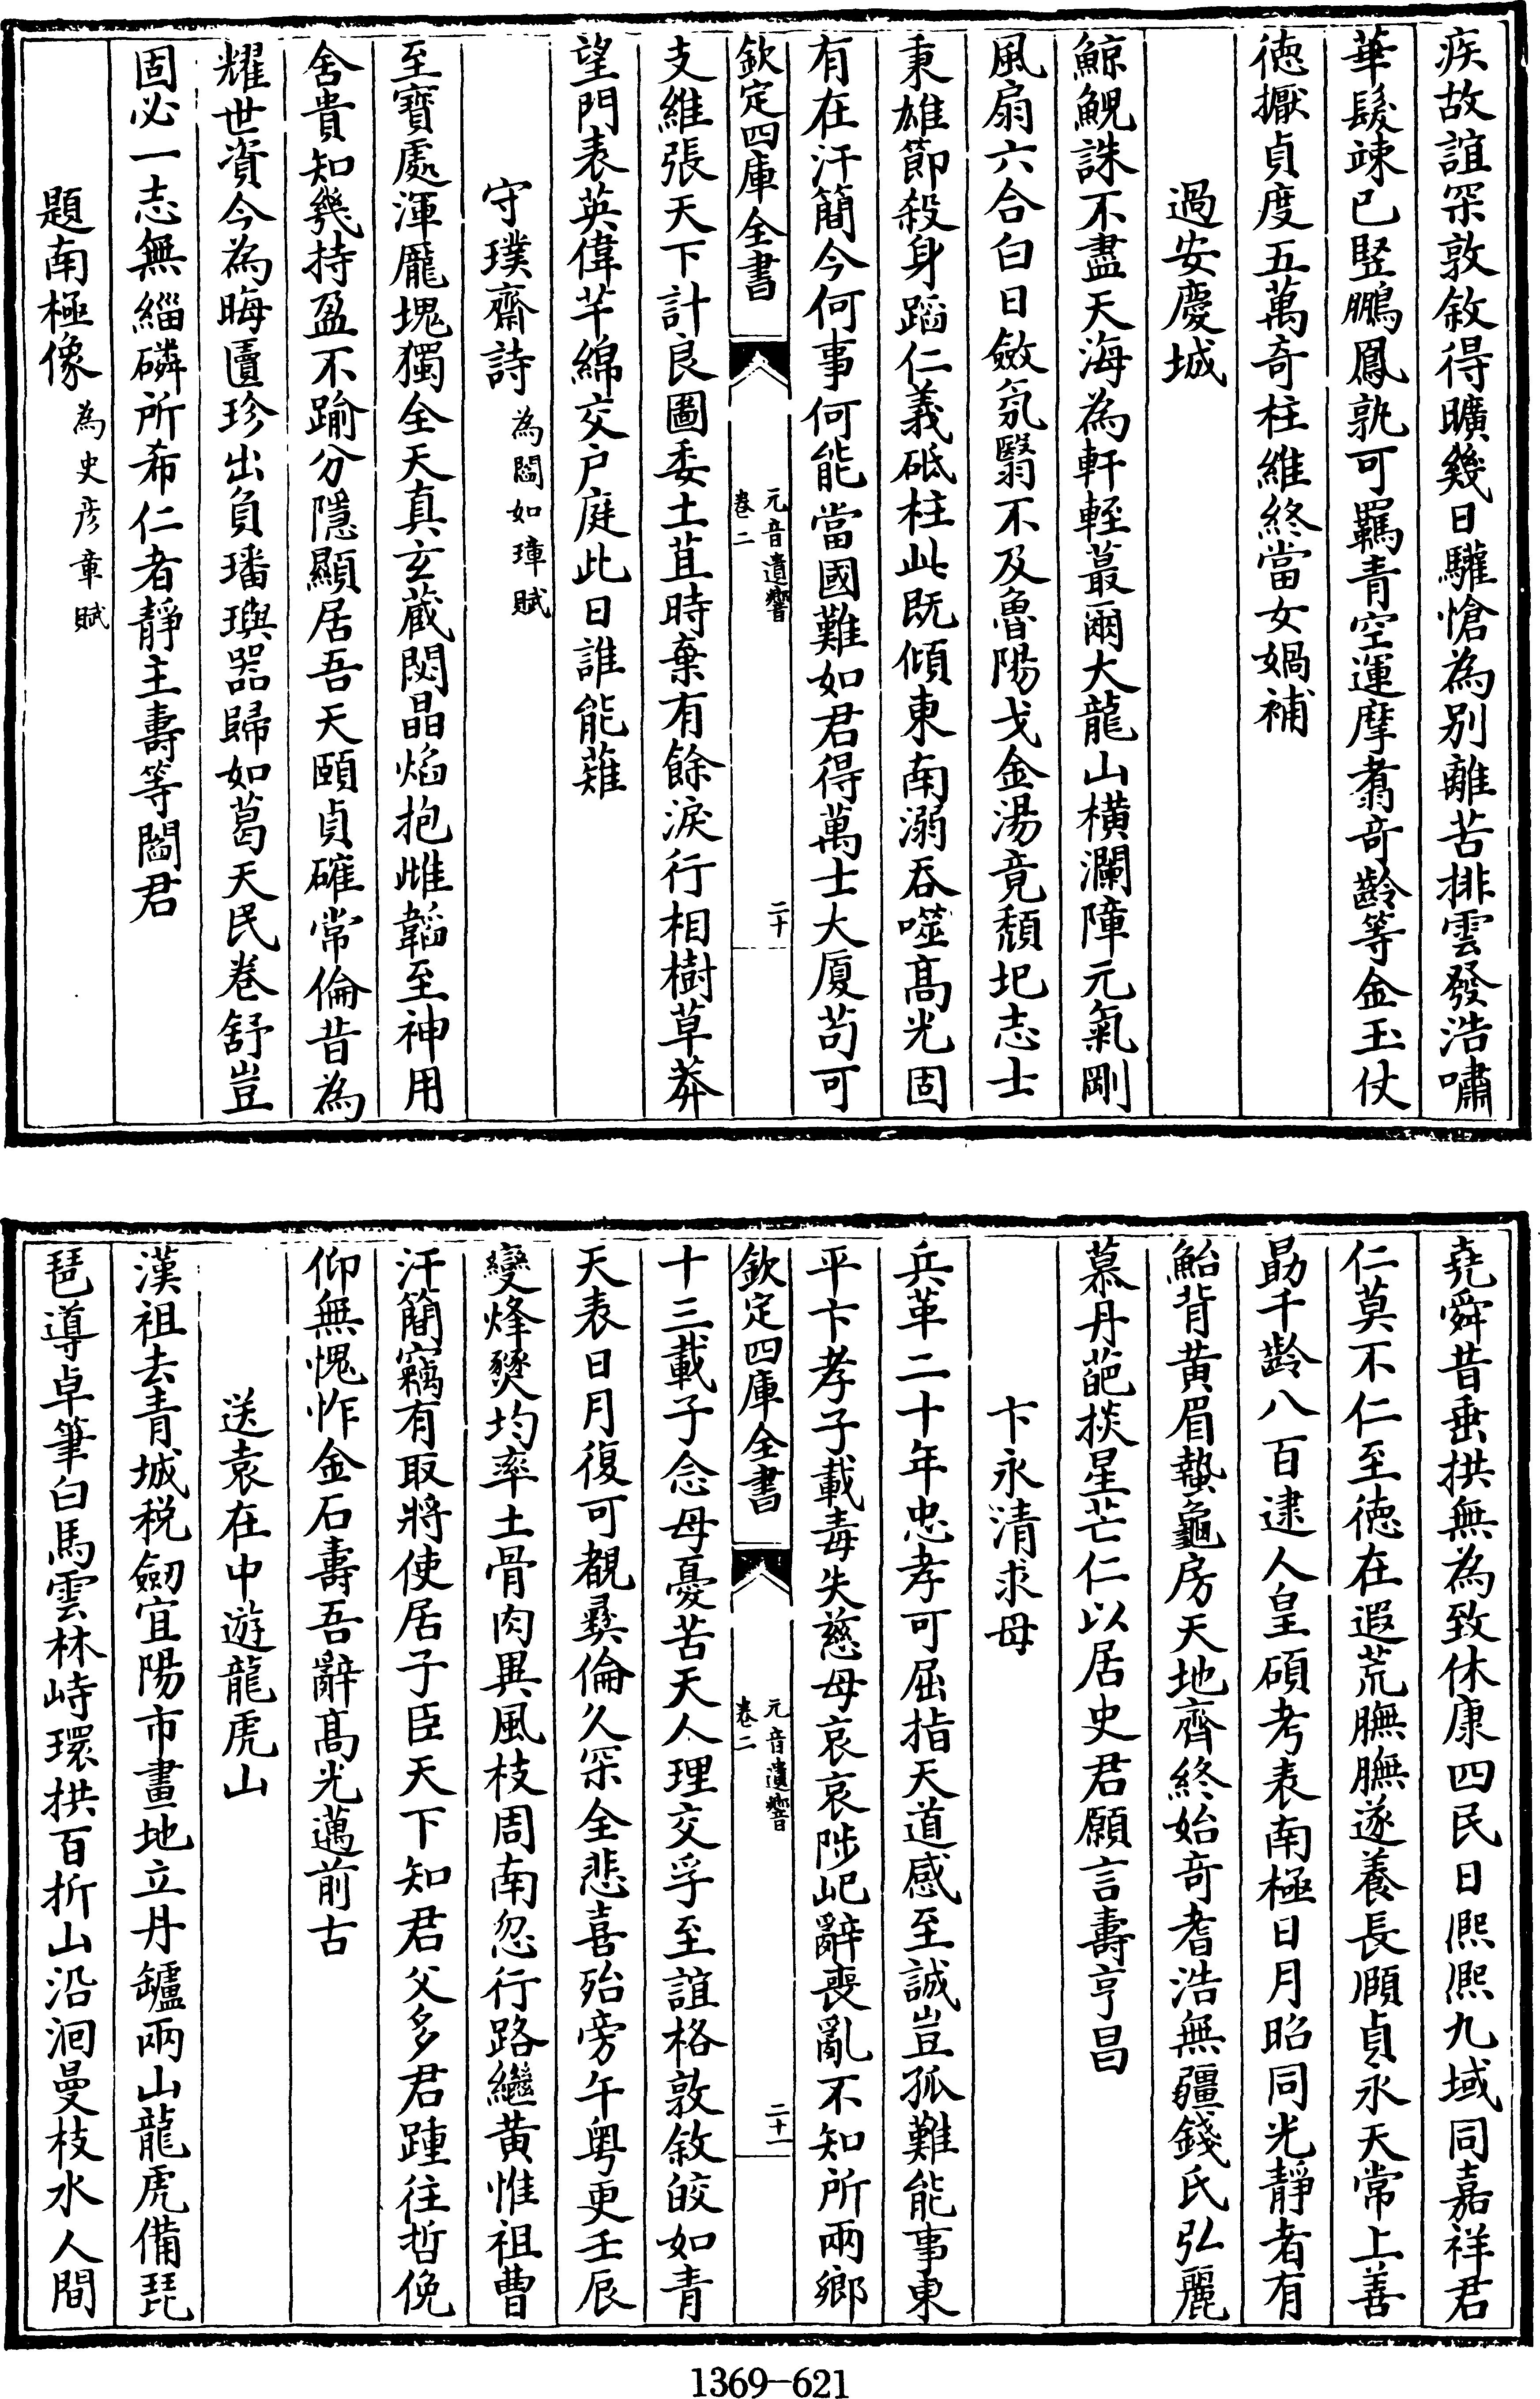 疾故誼罙敦敘得曠幾日驩愴為別離苦排雲發浩嘯
華髮竦已竪鵬鳳孰可羈青空運摩翥奇齡等金玉仗
德擬貞度五萬奇柱維終當女媧補
過安慶城
鯨鯢誅不盡天海為軒輊蕞爾大龍山橫瀾障元氣剛
風扇六合白日斂氛翳不及魯陽戈金湯竟頹圯志士
秉雄節殺身蹈仁義砥柱此既傾東南溺吞噬髙光固
有在汗簡今何事何能當國難如君得萬士大厦苟可
欽定四庫全書
元音遺響
卷二
二十
支維張天下計良圖委土苴時棄有餘淚行相樹草莽
望門表英偉芊綿交户庭此日誰能薙
守璞齋詩為閻如璋賦
至寶處渾厖塊獨全天真玄蔵閟晶焰抱雌韜至神用
舍貴知幾持盈不踰分隱顯居吾天頤貞確常倫昔為
耀世資今為晦匱珍出負璠璵器歸如葛天民卷舒豈
固必一志無緇磷所希仁者靜主壽等閻君
題南極像為史彥章賦
堯舜昔垂拱無為致休康四民日熈熈九域同嘉祥君
仁莫不仁至德在遐荒膴膴遂養長頤貞永天常上善
勗千齡八百逮人皇碩考表南極日月昭同光靜者有
鮐背黃眉蟄龜房天地齊終始奇耆浩無疆錢氏弘麗
慕丹葩掞星芒仁以居史君願言壽亨昌
卞永清求母
兵革二十年忠孝可屈指天道感至誠豈孤難能事東
平卞孝子載毒失慈母哀哀陟屺辭喪亂不知所兩鄉
欽定四庫全書
元音遺響
卷二
二十一
十三載子念母憂苦天人理交孚至誼格敦敘皎如青
天表日月復可覩彛倫久罙全悲喜殆旁午粤更壬辰
變烽燹均率土骨肉異風枝周南忽行路繼黃惟祖曹
汗簡竊有取將使居子臣天下知君父多君踵往哲俛
仰無愧怍金石壽吾辭髙光邁前古
送袁在中遊龍虎山
漢祖去青城税劒宜陽市畫地立丹罏兩山龍虎備琵
琶導卓筆白馬雲林峙環拱百折山沿洄曼枝水人間
1369-621